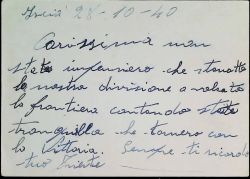 28-10-40
Carissima non
state impensiero che stanotte
la nostra divisione a valcato
la frontiera cantando state
tranquilla che tornero con
la Vittoria. Sempre ti ricordo
tuo